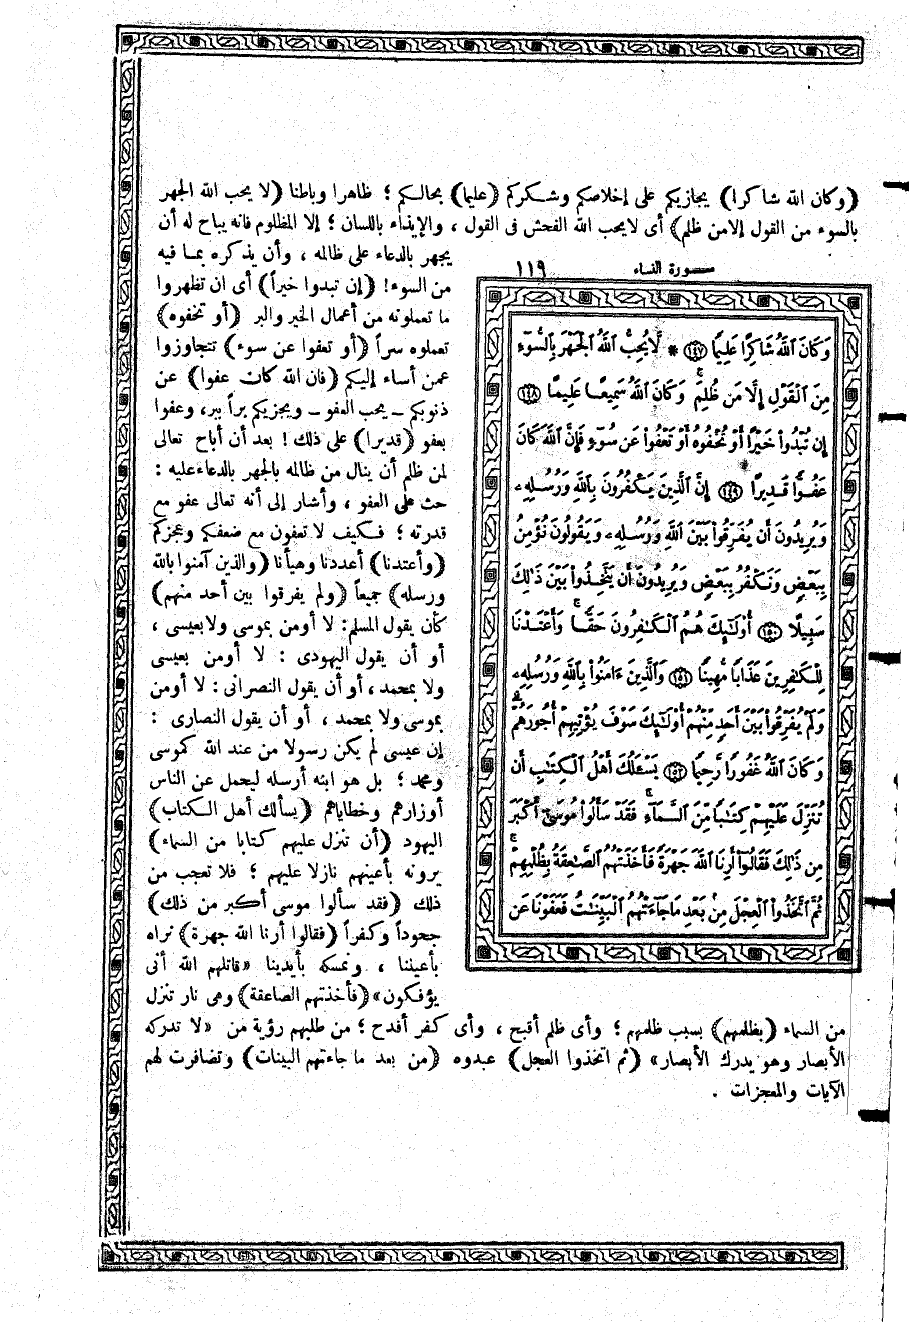 (وكان الله شاكرا) يجازيكم على إخلاصكم وشكركم (عليما) بحالكم ؛ ظاهرا وباطنا (لا يحب الله الجهر
بالسوء من القول إلامن ظلم) أى لايحب الله الفحش فى القول ، والإيذاء باللسان ؛ إلا المظلوم فانه يباح له أن
يجهر بالدعاء على ظالمه ، وأن يذكره بما فيه
من السوء! (إن تبدوا خيراً) أى ان تظهروا
ما تعملونه من أعمال الخير والبر (أو تخفوه)
تعملوه سراً (أو تعفوا عن سوء) تتجاوزوا
عمن أساء إليكم (فان الله كان عفوا) عن
ذنوبكم ــ يحب العفو ــ ويجزيكم براً ببر، وعفوا
بعفو (قديرا) على ذلك ! بعد أن أباح تعالى
لمن ظلم أن ينال من ظالمه بالجهر بالدعاءعليه :
حث على العفو ، وأشار إلى أنه تعالى عفو مع
قدرته ؛ فكيف لا تعفون مع ضعفكم وعجزكم
(وأعتدنا) أعددنا وهيأنا (والذين آمنوا بالله
ورسله) جميعاً (ولم يفرقوا بين أحد منهم)
كأن يقول المسلم: لا أومن بموسى ولابعيسى ،
أو أن يقول اليهودى : لا أومن بعيسى
ولا بمحمد ، أو أن يقول النصرانى : لا أومن
بموسى ولا بمحمد ، أو أن يقول النصارى :
إن عيسى لم يكن رسولا من عند الله كموسى
ومحمد ؛ بل هو ابنه أرسله ليحمل عن الناس
أوزارهم وخطاياهم (يسألك أهل الكتاب)
اليهود (أن تنزل عليهم كتابا من السماء)
يرونه بأعينهم نازلا عليهم ؛ فلا تعجب من
ذلك (فقد سألوا موسى أكبر من ذلك)
جحوداً وكفراً (فقالوا أرنا الله جهرة) نراه
بأعيننا ، ونمسكه بأيدينا «قاتلهم الله أنى
يؤفكون» (فأخذتهم الصاعقة) وهى نار تنزل
سورة النساء ١١٩
وَكَانَ ٱللَّهُ شَاكِرًا عَلِيمًا ١٤٧ * لَّا يُحِبُّ ٱللَّهُ ٱلْجَهْرَ بِٱلسُّوٓءِ
مِنَ ٱلْقَوْلِ إِلَّا مَن ظُلِمَ ۚ وَكَانَ ٱللَّهُ سَمِيعًا عَلِيمًا ١٤٨
إِن تُبْدُوا۟ خَيْرًا أَوْ تُخْفُوهُ أَوْ تَعْفُوا۟ عَن سُوٓءٍ فَإِنَّ ٱللَّهَ كَانَ
عَفُوًّا قَدِيرًا ١٤٩ إِنَّ ٱلَّذِينَ يَكْفُرُونَ بِٱللَّهِ وَرُسُلِهِۦ
وَيُرِيدُونَ أَن يُفَرِّقُوا۟ بَيْنَ ٱللَّهِ وَرُسُلِهِۦ وَيَقُولُونَ نُؤْمِنُ
بِبَعْضٍ وَنَكْفُرُ بِبَعْضٍ وَيُرِيدُونَ أَن يَتَّخِذُوا۟ بَيْنَ ذَٰلِكَ
سَبِيلًا ١٥٠ أُو۟لَـٰٓئِكَ هُمُ ٱلْكَـٰفِرُونَ حَقًّا ۚ وَأَعْتَدْنَا
لِلْكَـٰفِرِينَ عَذَابًا مُّهِينًا ١٥١ وَٱلَّذِينَ ءَامَنُوا۟ بِٱللَّهِ وَرُسُلِهِۦ
وَلَمْ يُفَرِّقُوا۟ بَيْنَ أَحَدٍ مِّنْهُمْ أُو۟لَـٰٓئِكَ سَوْفَ يُؤْتِيهِمْ أُجُورَهُمْ ۗ
وَكَانَ ٱللَّهُ غَفُورًا رَّحِيمًا ١٥٢ يَسْـَٔلُكَ أَهْلُ ٱلْكِتَـٰبِ أَن
تُنَزِّلَ عَلَيْهِمْ كِتَـٰبًا مِّنَ ٱلسَّمَآءِ ۚ فَقَدْ سَأَلُوا۟ مُوسَىٰٓ أَكْبَرَ
مِن ذَٰلِكَ فَقَالُوٓا۟ أَرِنَا ٱللَّهَ جَهْرَةً فَأَخَذَتْهُمُ ٱلصَّـٰعِقَةُ بِظُلْمِهِمْ ۚ
ثُمَّ ٱتَّخَذُوا۟ ٱلْعِجْلَ مِنۢ بَعْدِ مَا جَآءَتْهُمُ ٱلْبَيِّنَـٰتُ فَعَفَوْنَا عَن
من السماء (بظلمهم) بسبب ظلمهم ؛ وأى ظلم أقبح ، وأى كفر أفدح ؛ من طلبهم رؤية من «لا تدركه
الأبصار وهو يدرك الأبصار» (ثم اتخذوا العجل) عبدوه (من بعد ما جاءتهم البينات) وتضافرت لهم
الآيات والمعجزات .